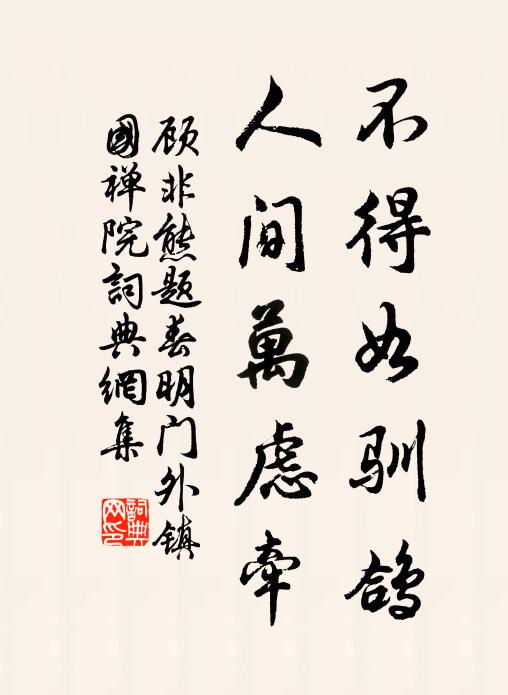 不得如驯鸽
人间萬慮牽
顾非熊题春明门外镇
國禅院詞典網集
詞典网印